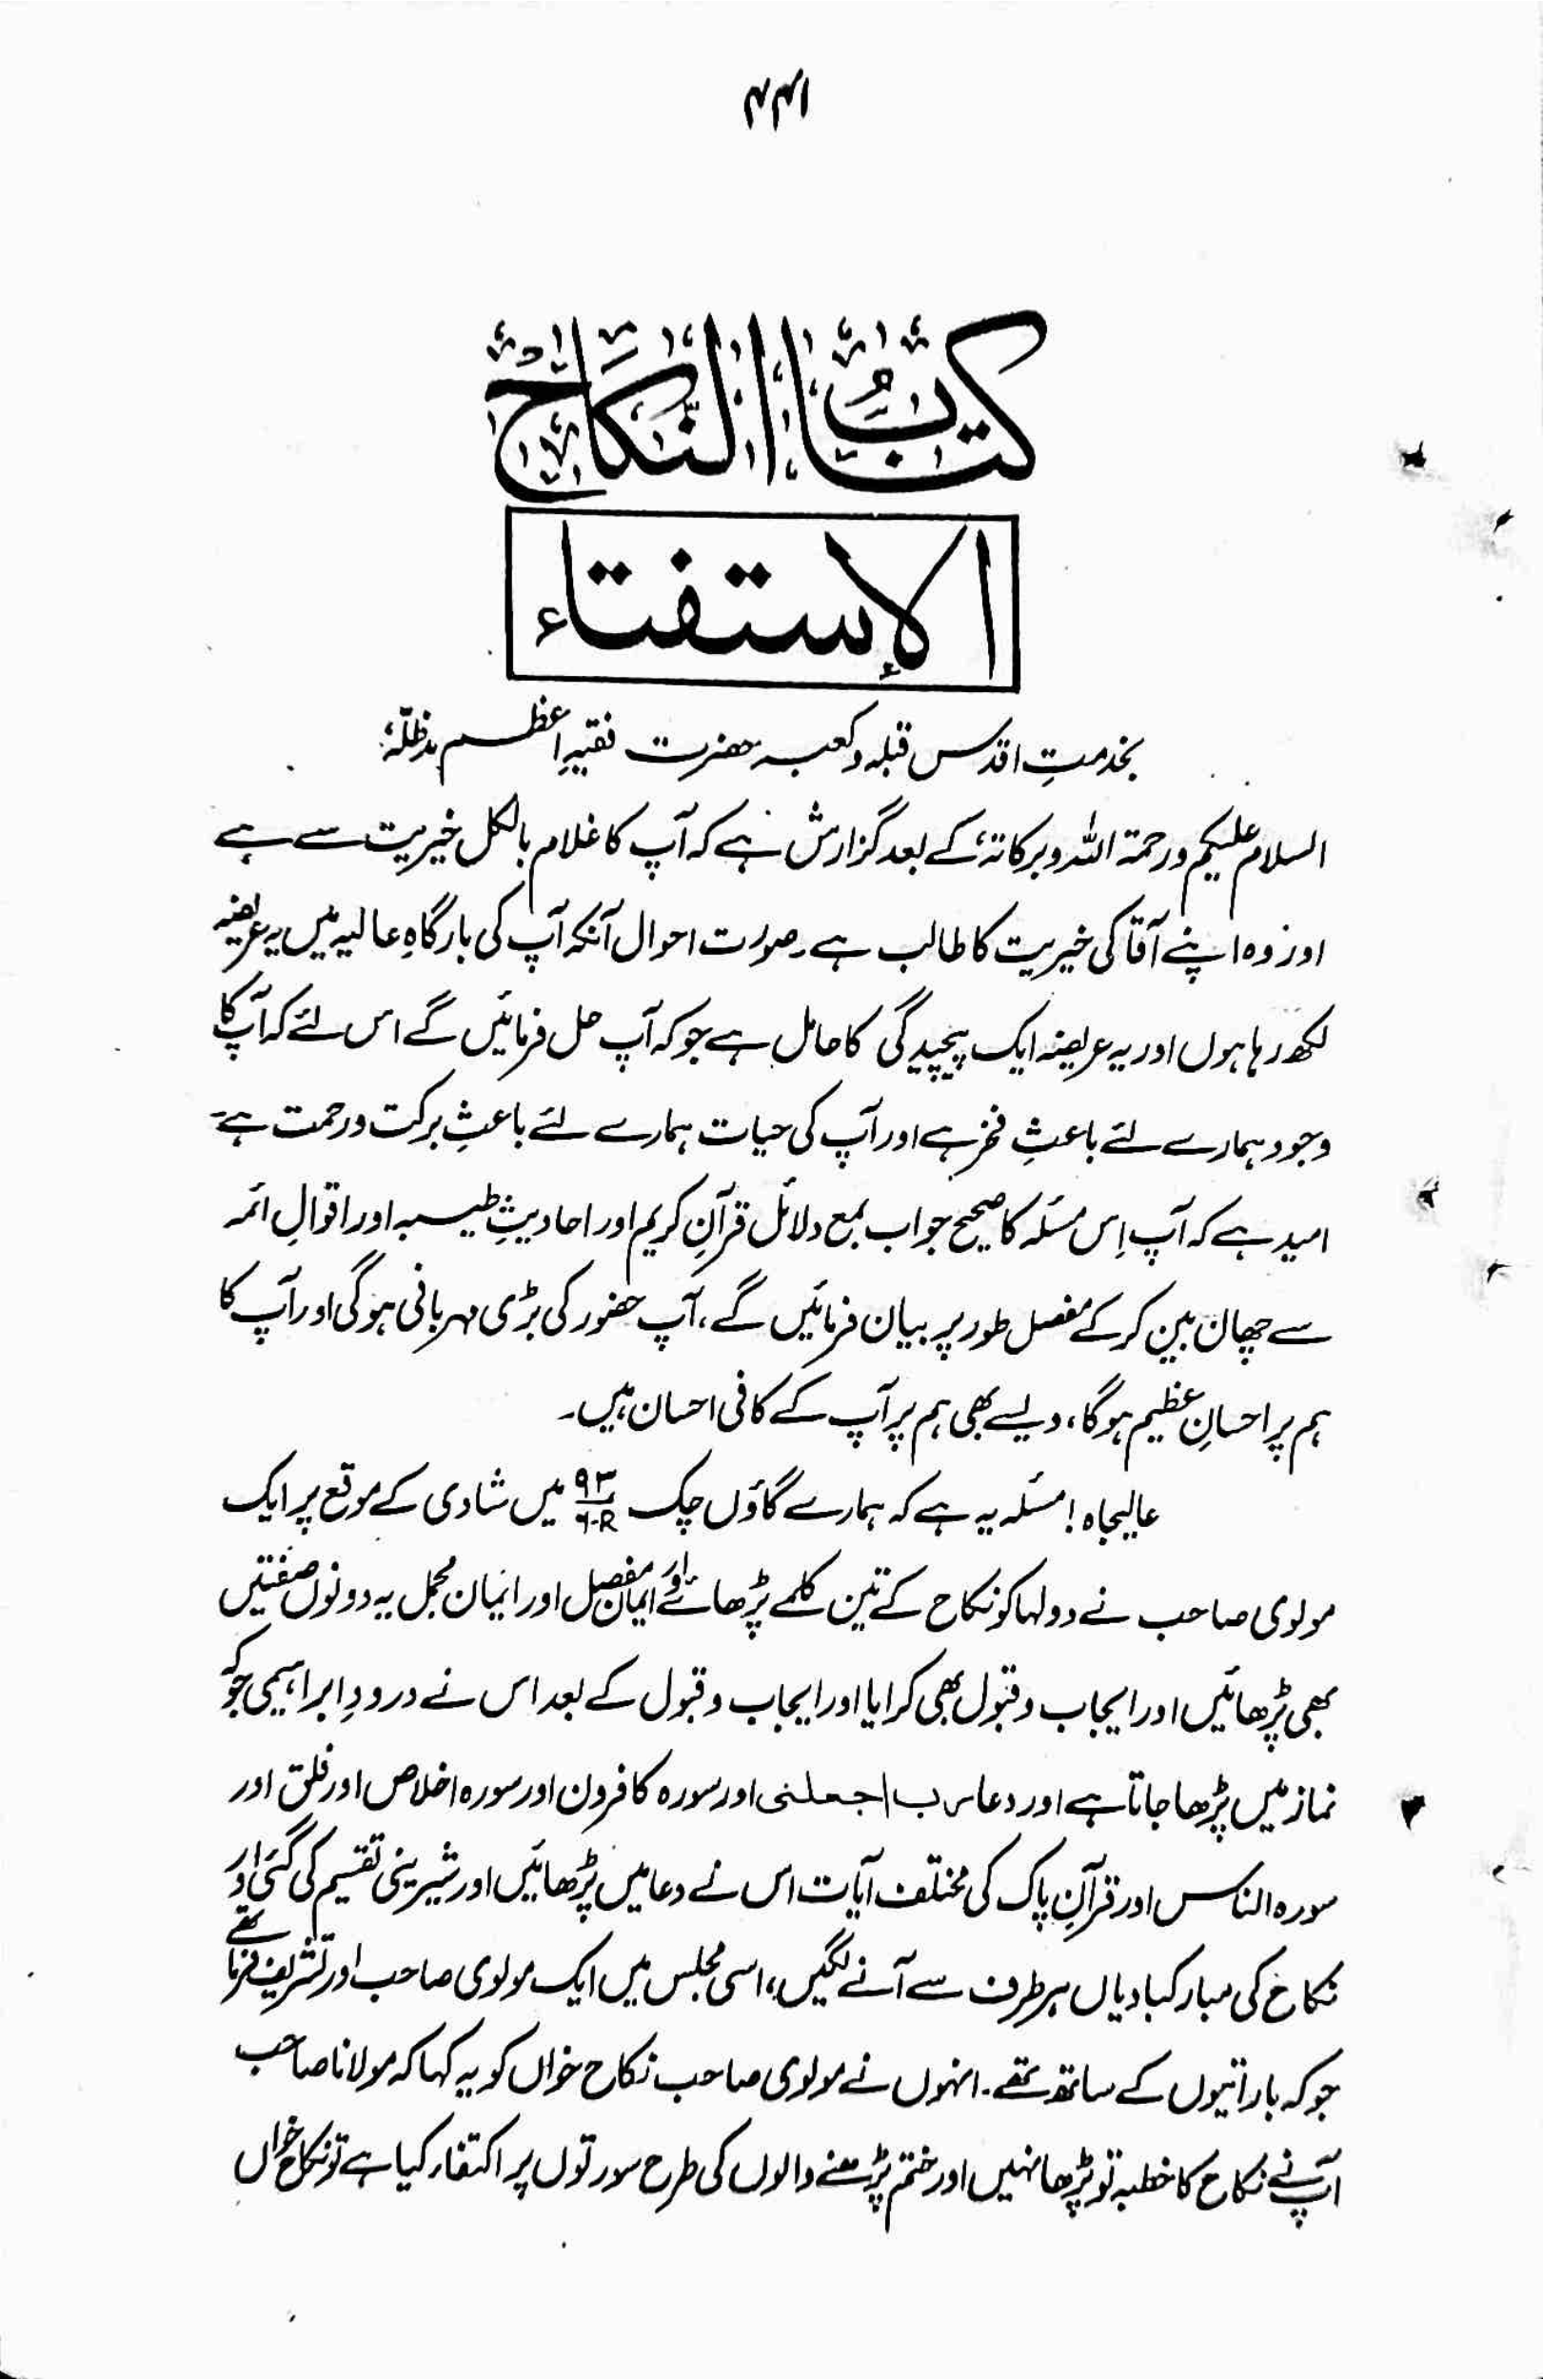 ۴۴۱
کتابُ النّکَاح
الإستفتاء
بخدمتِ اقدس قبلہ وکعبہ حضرت فقیہِ اعظم مدظلّہٗ
السلام علیکم ورحمۃ اللہ وبرکاتہٗ کے بعد گزارش ہے کہ آپ کا غلام بالکل خیریت سے ہے
اور وہ اپنے آقا کی خیریت کا طالب ہے۔ صورت احوال آنکہ آپ کی بارگاہِ عالیہ میں یہ عریضہ
لکھ رہا ہوں اور یہ عریضہ ایک پیچیدگی کا حامل ہے جو کہ آپ حل فرمائیں گے اس لئے کہ آپ کا
وجود ہمارے لئے باعثِ فخر ہے اور آپ کی حیات ہمارے لئے باعثِ برکت ورحمت ہے۔
امید ہے کہ آپ اِس مسئلہ کا صحیح جواب بمع دلائل قرآنِ کریم اور احادیثِ طیبہ اور اقوالِ ائمہ
سے چھان بین کر کے مفصل طور پر بیان فرمائیں گے، آپ حضور کی بڑی مہربانی ہوگی اور آپ کا
ہم پر احسانِ عظیم ہوگا، ویسے بھی ہم پر آپ کے کافی احسان ہیں۔
عالیجاہ! مسئلہ یہ ہے کہ ہمارے گاؤں چک ۹۳/۶-R میں شادی کے موقع پر ایک
مولوی صاحب نے دولہا کو نکاح کے تین کلمے پڑھائے اور ایمان مفصل اور ایمان مجمل یہ دونوں صفتیں
بھی پڑھائیں اور ایجاب وقبول بھی کرایا اور ایجاب وقبول کے بعد اس نے درودِ ابراہیمی جو کہ
نماز میں پڑھا جاتا ہے اور دعا رب اجعلنی اور سورہ کافرون اور سورہ اخلاص اور فلق اور
سورہ الناس اور قرآنِ پاک کی مختلف آیات اس نے دعا میں پڑھائیں اور شیرینی تقسیم کی گئی اور
نکاح کی مبارکبادیاں ہر طرف سے آنے لگیں، اسی مجلس میں ایک مولوی صاحب اور تشریف فرما تھے
جو کہ باراتیوں کے ساتھ تھے۔ انہوں نے مولوی صاحب نکاح خواں کو یہ کہا کہ مولانا صاحب
آپ نے نکاح کا خطبہ تو پڑھا نہیں اور ختم پڑھنے والوں کی طرح سورتوں پر اکتفاء کیا ہے تو نکاح خواں